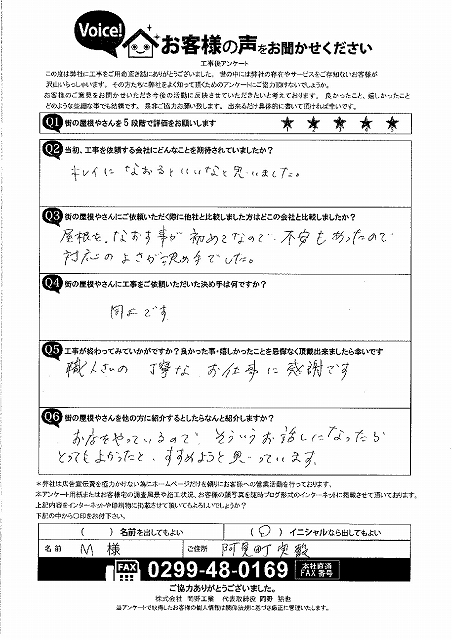 Voice!
お客様の声をお聞かせください
工事後アンケート
この度は弊社に工事をご用命頂き誠にありがとうございました。世の中には弊社の存在やサービスをご存知ないお客様が
沢山いらっしゃいます。その方たちに弊社をよく知って頂くためのアンケートにご協力頂けないでしょうか。
お客様のご意見をお聞かせいただき今後の活動に反映させていただきたいと考えております。良かったこと、嬉しかったこと
どのような些細な事でも結構です。是非ご協力お願い致します。出来るだけ具体的に書いて頂ければ幸いです。
Q1 街の屋根やさんを5段階で評価をお願いします ★ ★ ★ ★ ★
Q2 当初、工事を依頼する会社にどんなことを期待されていましたか?
キレイになおるといいなと思いました。
Q3 街の屋根やさんにご依頼いただく際に他社と比較しました方はどこの会社と比較しましたか?
屋根を、なおす事が初めてなので、不安もあったので
対応のよさが決め手でした。
Q4 街の屋根やさんに工事をご依頼いただいた決め手は何ですか?
同上です
Q5 工事が終わってみていかがですか?良かった事・嬉しかったことを忌憚なく頂戴出来ましたら幸いです
職人さんの丁寧なお仕事に感謝です
Q6 街の屋根やさんを他の方に紹介するとしたらなんと紹介しますか?
お店をやっているので、そういうお話しになったら
とってもよかったと、すすめようと思っています。
*弊社は広告宣伝費を極力かけない為にホームページだけを頼りにお客様への営業活動を行っております。
*本アンケート用紙またはお客様宅の調査風景や施工状況、お客様の顔写真を随時ブログ形式のインターネットに掲載させて頂いております。
上記内容をインターネットや印刷物に掲載させて頂いてもよろしいでしょうか?
下記の中から〇印をお付下さい。
( )名前を出してもよい (〇)イニシャルなら出してもよい
名前 M 様 ご住所 阿見町実穀
FAX 0299-48-0169 本社直通 FAX番号
ご協力ありがとうございました。
株式会社 岡野工業 代表取締役 岡野
当アンケートで取得したお客様の個人情報は関係法規に基づき厳正に管理いたします。